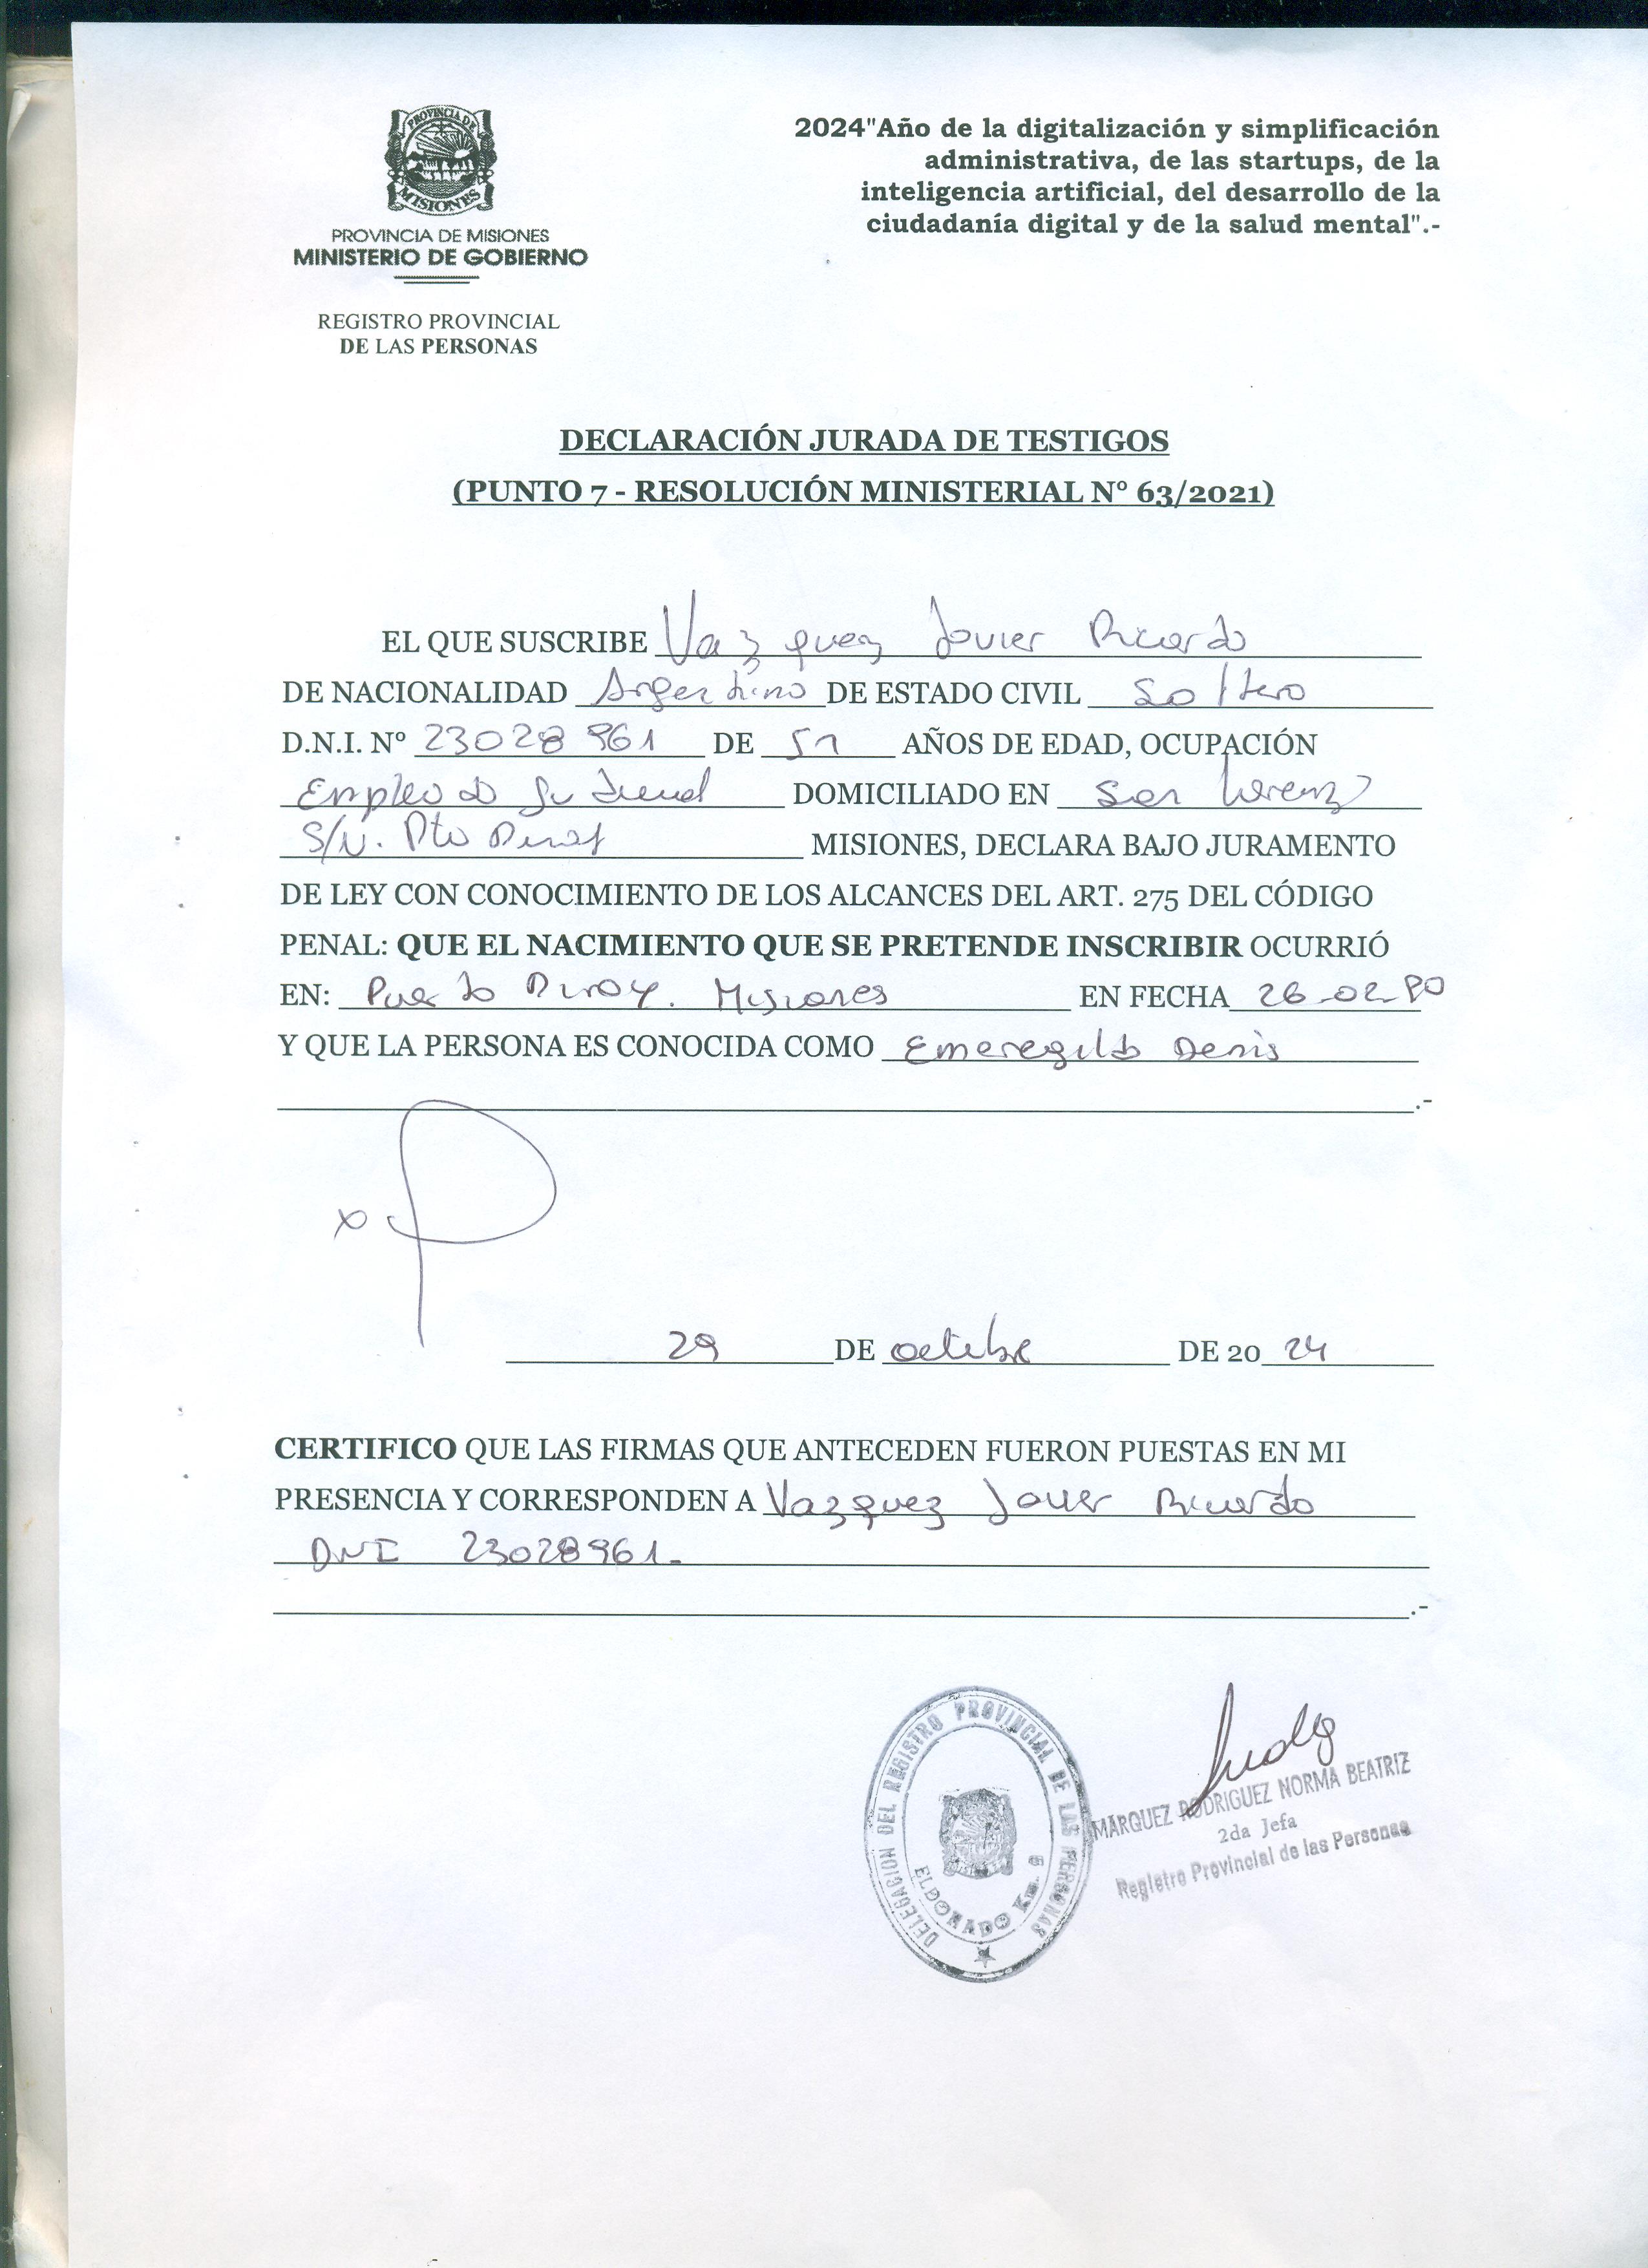 PROVINCIA DE
MISIONES
PROVINCIA DE MISIONES
MINISTERIO DE GOBIERNO
REGISTRO PROVINCIAL
DE LAS PERSONAS
2024"Año de la digitalización y simplificación
administrativa, de las startups, de la
inteligencia artificial, del desarrollo de la
ciudadanía digital y de la salud mental".-
DECLARACIÓN JURADA DE TESTIGOS
(PUNTO 7 - RESOLUCIÓN MINISTERIAL N° 63/2021)
EL QUE SUSCRIBE Vazquez Javier Ricardo
DE NACIONALIDAD Argentino DE ESTADO CIVIL Soltero
D.N.I. Nº 23028961 DE 51 AÑOS DE EDAD, OCUPACIÓN
Empleado DOMICILIADO EN San Lorenzo
S/N. Pto MISIONES, DECLARA BAJO JURAMENTO
DE LEY CON CONOCIMIENTO DE LOS ALCANCES DEL ART. 275 DEL CÓDIGO
PENAL: QUE EL NACIMIENTO QUE SE PRETENDE INSCRIBIR OCURRIÓ
EN: Puerto Piray. Misiones EN FECHA 26-02-80
Y QUE LA PERSONA ES CONOCIDA COMO Emeregildo Denis
.-
x
29 DE octubre DE 20 24
CERTIFICO QUE LAS FIRMAS QUE ANTECEDEN FUERON PUESTAS EN MI
PRESENCIA Y CORRESPONDEN A Vazquez Javier Ricardo
DNI 23028961.-
.-
DELEGACION DEL REGISTRO PROVINCIAL DE LAS PERSONAS
ELDORADO Km. 9
MARQUEZ RODRIGUEZ NORMA BEATRIZ
2da Jefa
Registro Provincial de las Personas